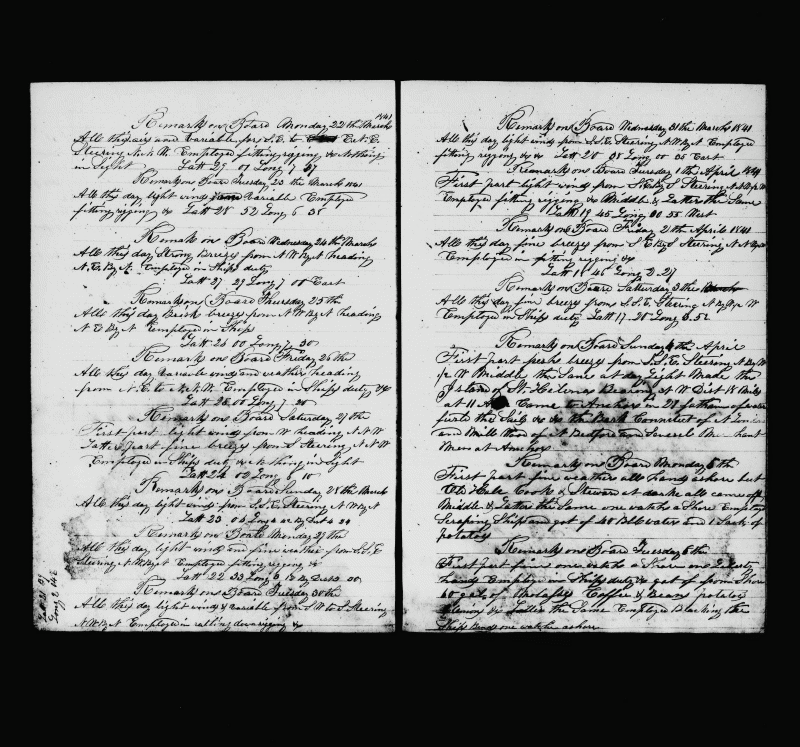 Remarks on Board Monday 22th March 1841
All this day wind variable from S.E. to Est. E
Steering N.N.W. Employed fitting rigging & Nothing
in Sight Latt 29 01 Long 7 37
Remarks on Board Tuesday 23 th March 1841
All this day light winds variable Employed
fitting rigging & Latt 28 52 Long 6 35
Remark on Board Wednesday 24th March
All this day Strong Breezs from N W By N heading
N.E. By N. Employed in Ships duty
Latt 27 27 Long 7 00 East
Remarks on Board Thursday 25th
All this day Brisk breezs from N W By N heading
N E By N Employed in Ships
Latt 26 00 Long 7 30
Remarks on Board Friday 26 the
All this day variable winds and weather heading
from N.E. to N.N.W. Employed in Ships duty &c
Latt 25 00 Long 7 20
Remarks on Board Saturday 27 the
First part light winds from W heading N N W
Latter part fine breezs from S Steering N N W
Employed in Ships duty & nothing in Sight
Latt 24 02 Long 6 10
Remarks on Board Sunday 28 the March
All this day light winds from S.S.E. Steering N W By N
Latt 23 03 Long 4 54
Remarks on Board Monday 29 the
All this day light winds and fine weather from S.S.E
Steering N.W.By N Employed fitting rigging &
Latt 22 33 Long 3
Remarks on Board Tuesday 30 the
All this day light winds & variable from S W to S Steering
N.W.By N Employed in rattling down rigging &
Latt 21 27
Long 2 42 E
Remarks on Board Wednesday 31 the March 1841
All this day light winds from S.S.E. Steering N.W.By N Employed
fitting rigging & & Latt 20 08 Long 00 05 East
Remarks on Board Tursday 1 th April 1841
First part light winds from S.E.By S Steering N.W.By W
Employed fitting rigging & Middle & Latter the Same
Latt 19 45 Long 00 55 West
Remarks on Board Friday 2 th April 1841
All this day fine breezs from S E By S Steering N N W
Employed in fitting rigging &
Latt 18 45 Long 2 27
Remarks on Board Satturday 3 the
All this day fine breezs from S.S.E. Steering N W By W
Employed in Ships duty Latt 17. 28 Long 3.52
Remarks on Board Sunday 4 the April
First part fresh breezs from S.S.E. Steering N By W
1/2 W Middle the Same at day light Made the
Island of St Helena Bearing N W Dist 18 Miles
at 11 AM Came to Anchors in 21 fathom of water
furld the Sails & & the Bark Connecticut of N London
and Mill Wood of N Bedford and Several Merchant
Men at Anchors
Remarks on Board Monday 5 the
First part fine weather all hands ashore but
Cook & Steward at dark all came off
Middle & Latter the Same one watch a Shore Employed
Scraping Ship and got of 40 Bbl water and 1 Sack of
potatos
Remarks on Board Tuesday 6 the
First part fine one watch a Shore on Liberty
hands Employed in Ships duty & got of from Shore
60 gal of Molasses Coffee & Beans potatos
& Latter the Same Employed Blacking the
Ships Bends one watch ashore